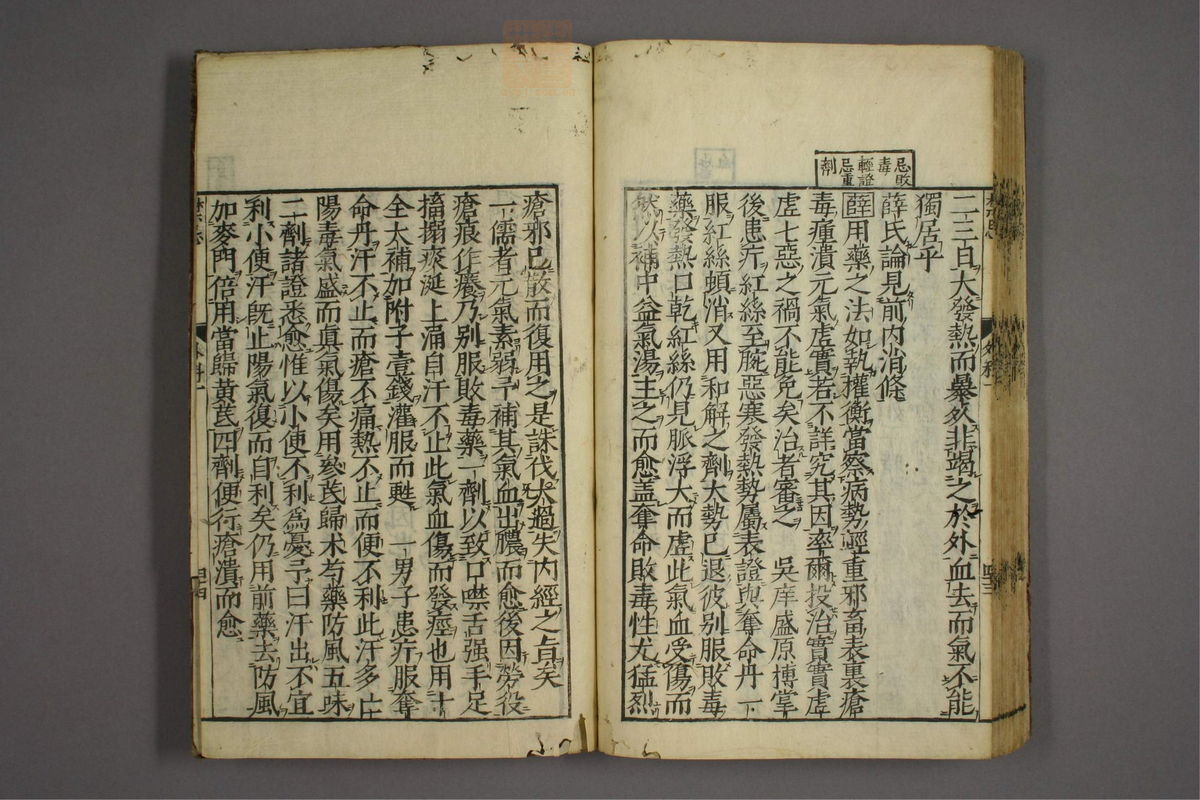 忌敗
毒
輕證
忌重
劑
二三日大發熱而暴然非竭之於外血去而氣不能
獨居乎
薛氏論見前内消條
薛用藥之法如執權衡當察病勢輕重邪畜表裏瘡
毒瘇潰元氣虚實若不詳究其因率爾投治實實虚
虚七惡之禍不能免矣治者審之 吳庠盛原博掌
後患疔紅絲至腕惡寒發熱勢屬表證與奪命丹一
服紅絲頓消又用和解之劑大勢已退彼別服敗毒
藥發熱口乾紅絲仍見脈浮大而虚此氣血受傷而
然以補中益氣湯主之而愈盖奪命敗毒性尤猛烈
瘡邪已散而復用之是誅伐太過失内經之旨矣
一儒者元氣素弱予補其氣血出膿而愈後因勞役
瘡痕作癢乃別服敗毒藥一劑以致口噤舌强手足
搐搦痰涎上涌自汗不止此氣血傷而發痙也用十
全大補加附子壹錢灌服而甦 一男子患疔服奪
命丹汗不止而瘡不痛熱不止而便不利此汗多亡
陽毒氣盛而真氣傷矣用參芪歸术芍藥防風五味
二十劑諸證悉愈惟以小便不利為憂予曰汗出不宜
利小便汗既止陽氣復而自利矣仍用前藥去防風
加麥門倍用當歸黃芪四劑便行瘡潰而愈
四十四